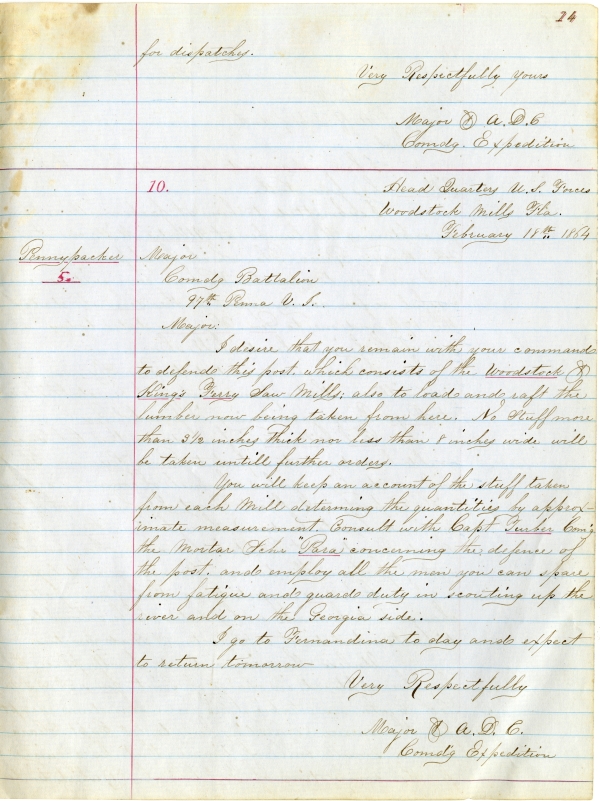 14
for dispatches.
Very Respectfully yours
Major & A.D.C
Comdg. Expedition
10.
Head Quarters U.S. Forces
Woodstock Mills Fla.
February 18th 1864
Pennypacker
5.
Major
Comdg Battalion
97th Penna V.S.
Major:
I desire that you remain with your command
to defend this post, which consists of the Woodstock &
King's Ferry Saw Mills; also to load and raft the
lumber now being taken from here. No Stuff more
than 3 1/2 inches thick nor less than 8 inches wide will
be taken untill further orders.
You will keep an account of the stuff taken
from each Mill determining the quantities by approx-
imate measurement. Consult with Capt Furber Com'g
the Mortar Schr "Para" concerning the defence of
the post, and employ all the men you can spare
from fatigue and guard duty in scouting up the
river and on the Georgia side.
I go to Fernandina to day and expect
to return tomorrow
Very Respectfully
Major & A.D.C.
Comd'g Expedition